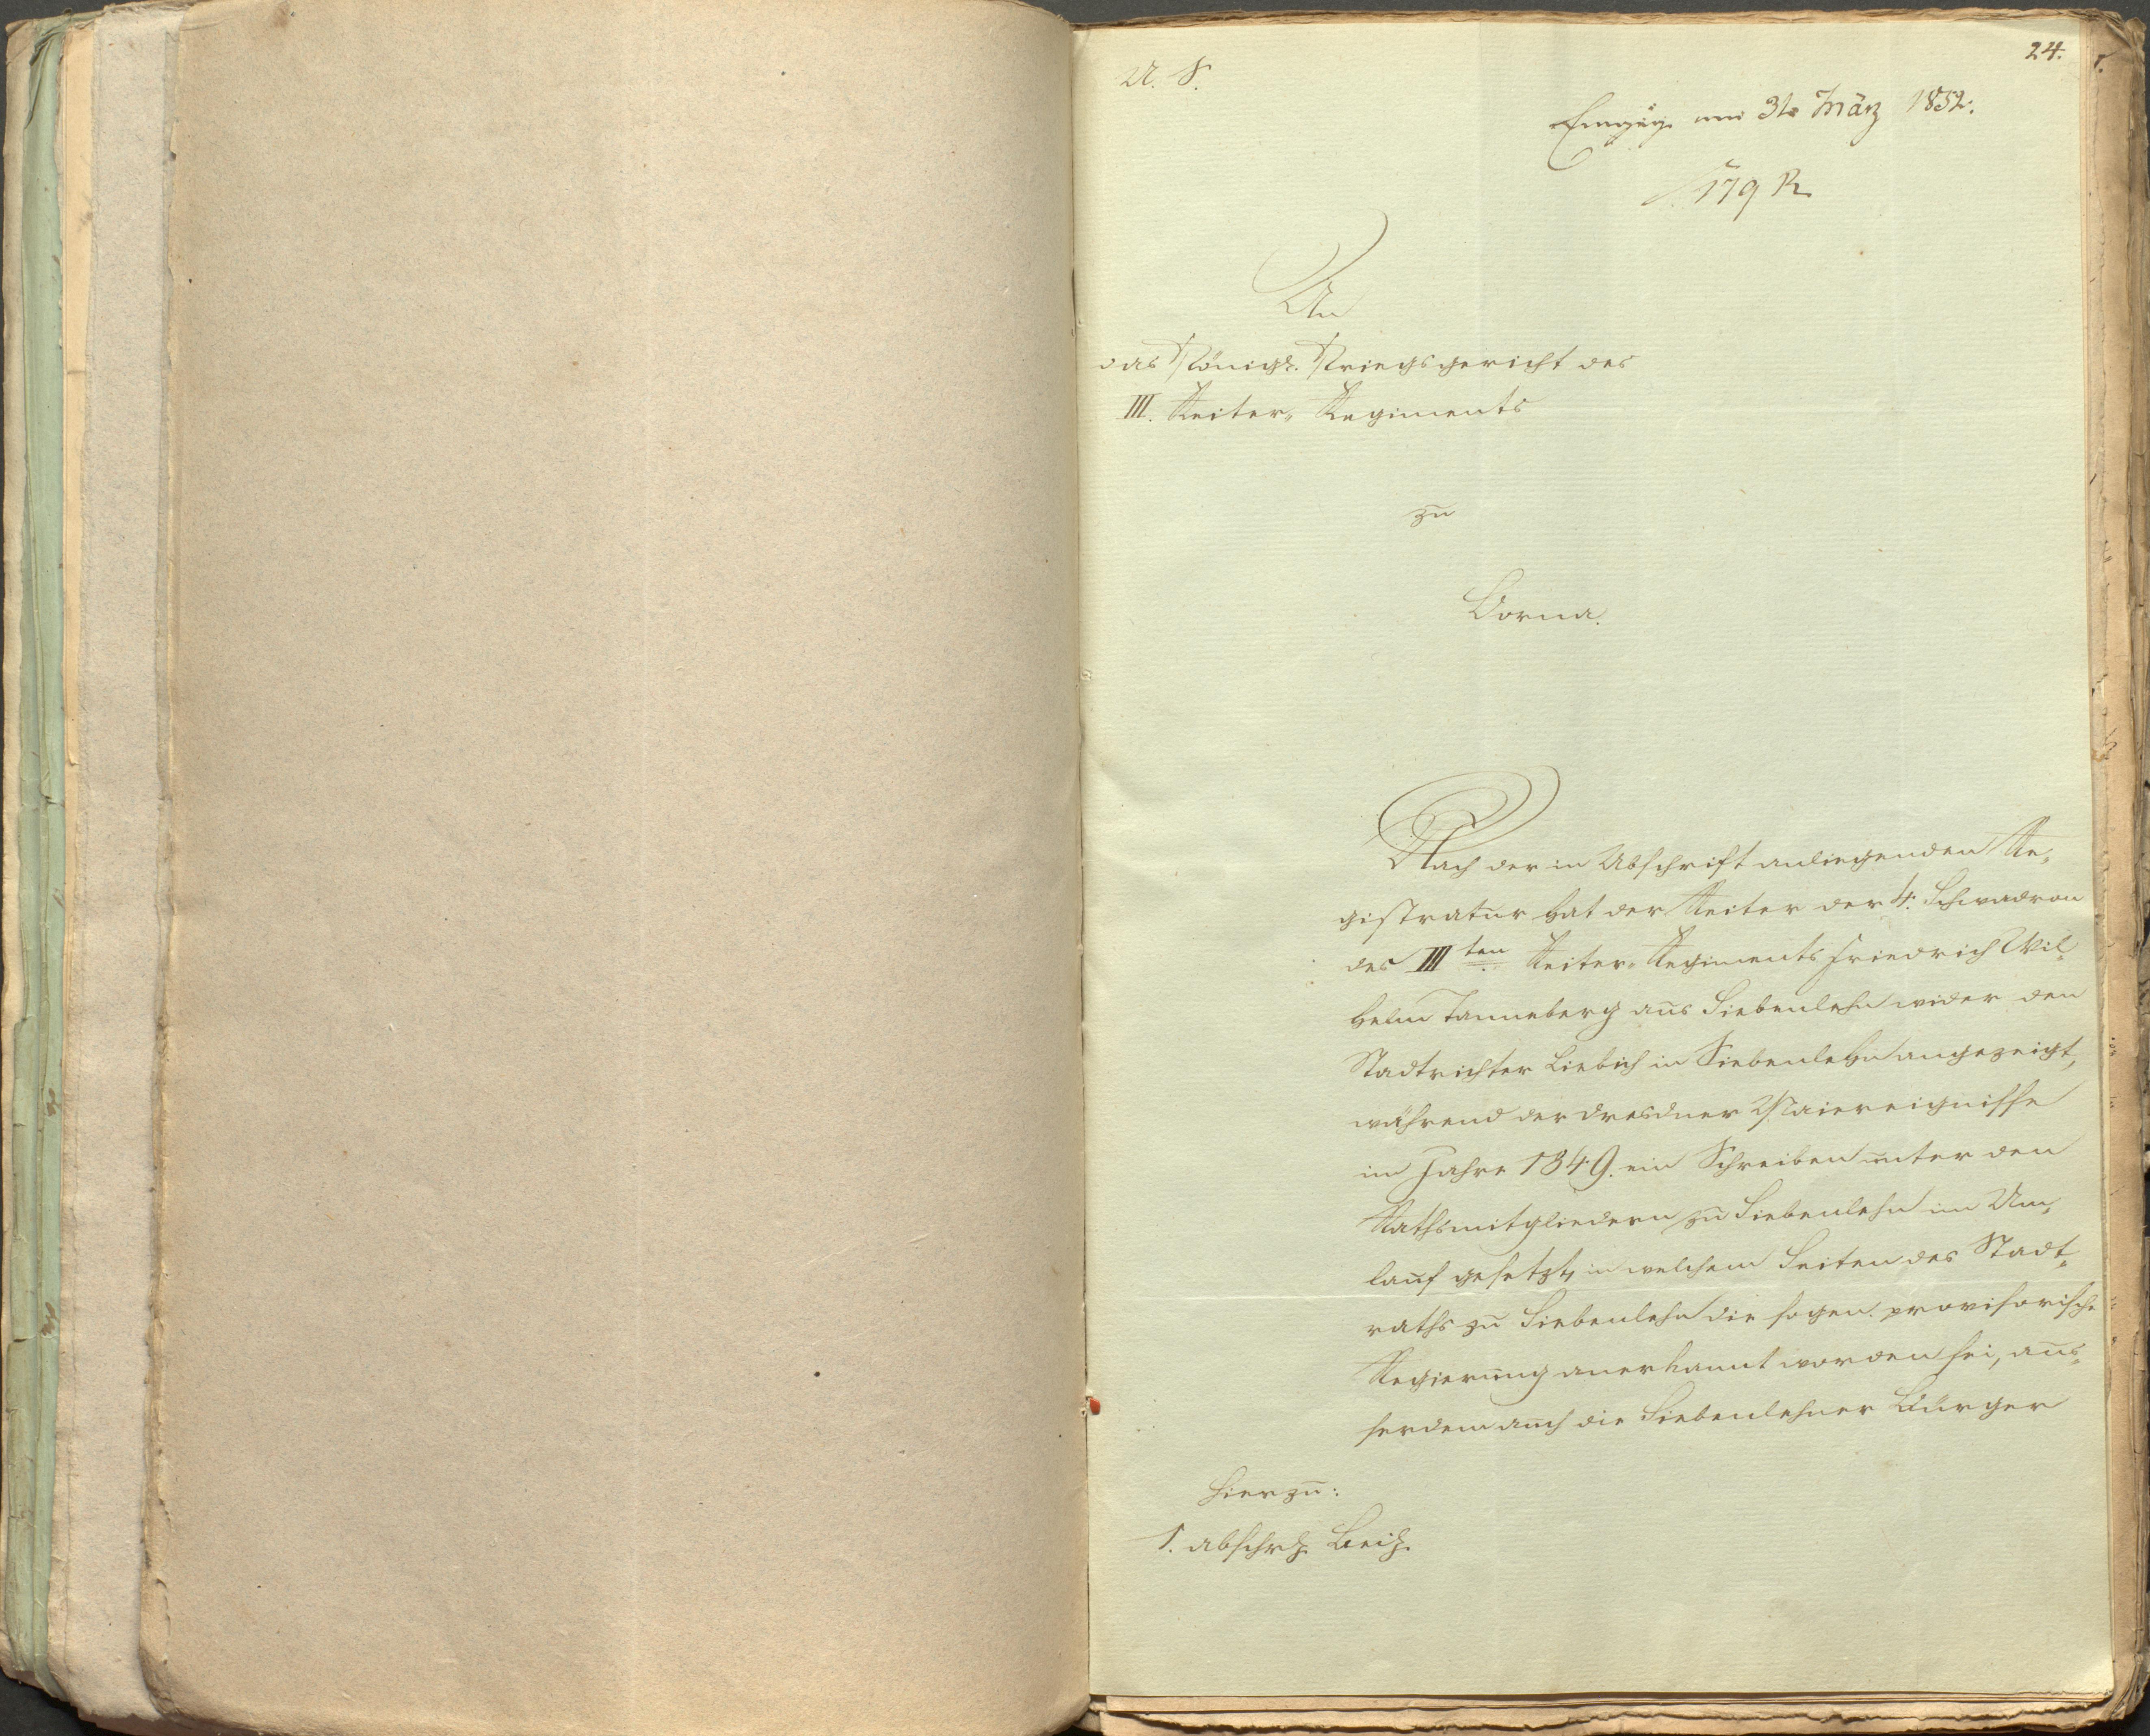 24.
U. S.
Eingeg. am 31. März 1852.
179 R
An
das Königl. Kriegsgericht des
III. Reiter-Regiments
zu
Borna.
Nach der in Abschrift anliegenden Re-
gistratur hat der Reiter der 4. Schwadron
des III ten Reiter-Regiments Friedrich Wil-
helm Tanneberg aus Siebenlehn wider den
Stadtrichter Liebich in Siebenlehn angezeigt,
während der Dresdner Maiereignisse
im Jahre 1849. ein Schreiben unter den
Rathsmitgliedern zu Siebenlehn im Um-
lauf gesetzt, in welchem Seiten des Stadt-
raths zu Siebenlehn die sogen. provisorische
Regierung anerkannt worden sei, aus-
serdem auch die Siebenlehner Bürger
Hierzu:
1. abschrl. Beil.